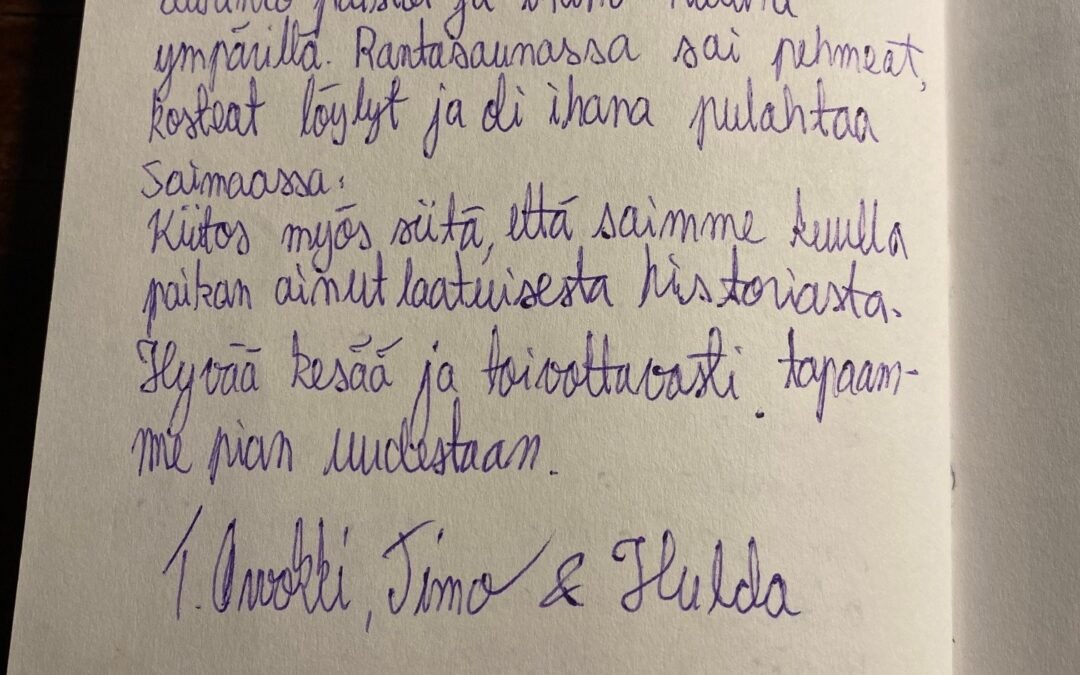 ja
ympärillä. Rantasaunassa sai pehmeät,
kosteat löylyt ja oli ihana pulahtaa
Saimaassa.
Kiitos myös siitä, että saimme kuulla
paikan ainutlaatuisesta historiasta.
Hyvää kesää ja toivottavasti tapaam-
me pian uudestaan.
T. Orvokki, Timo & Hulda